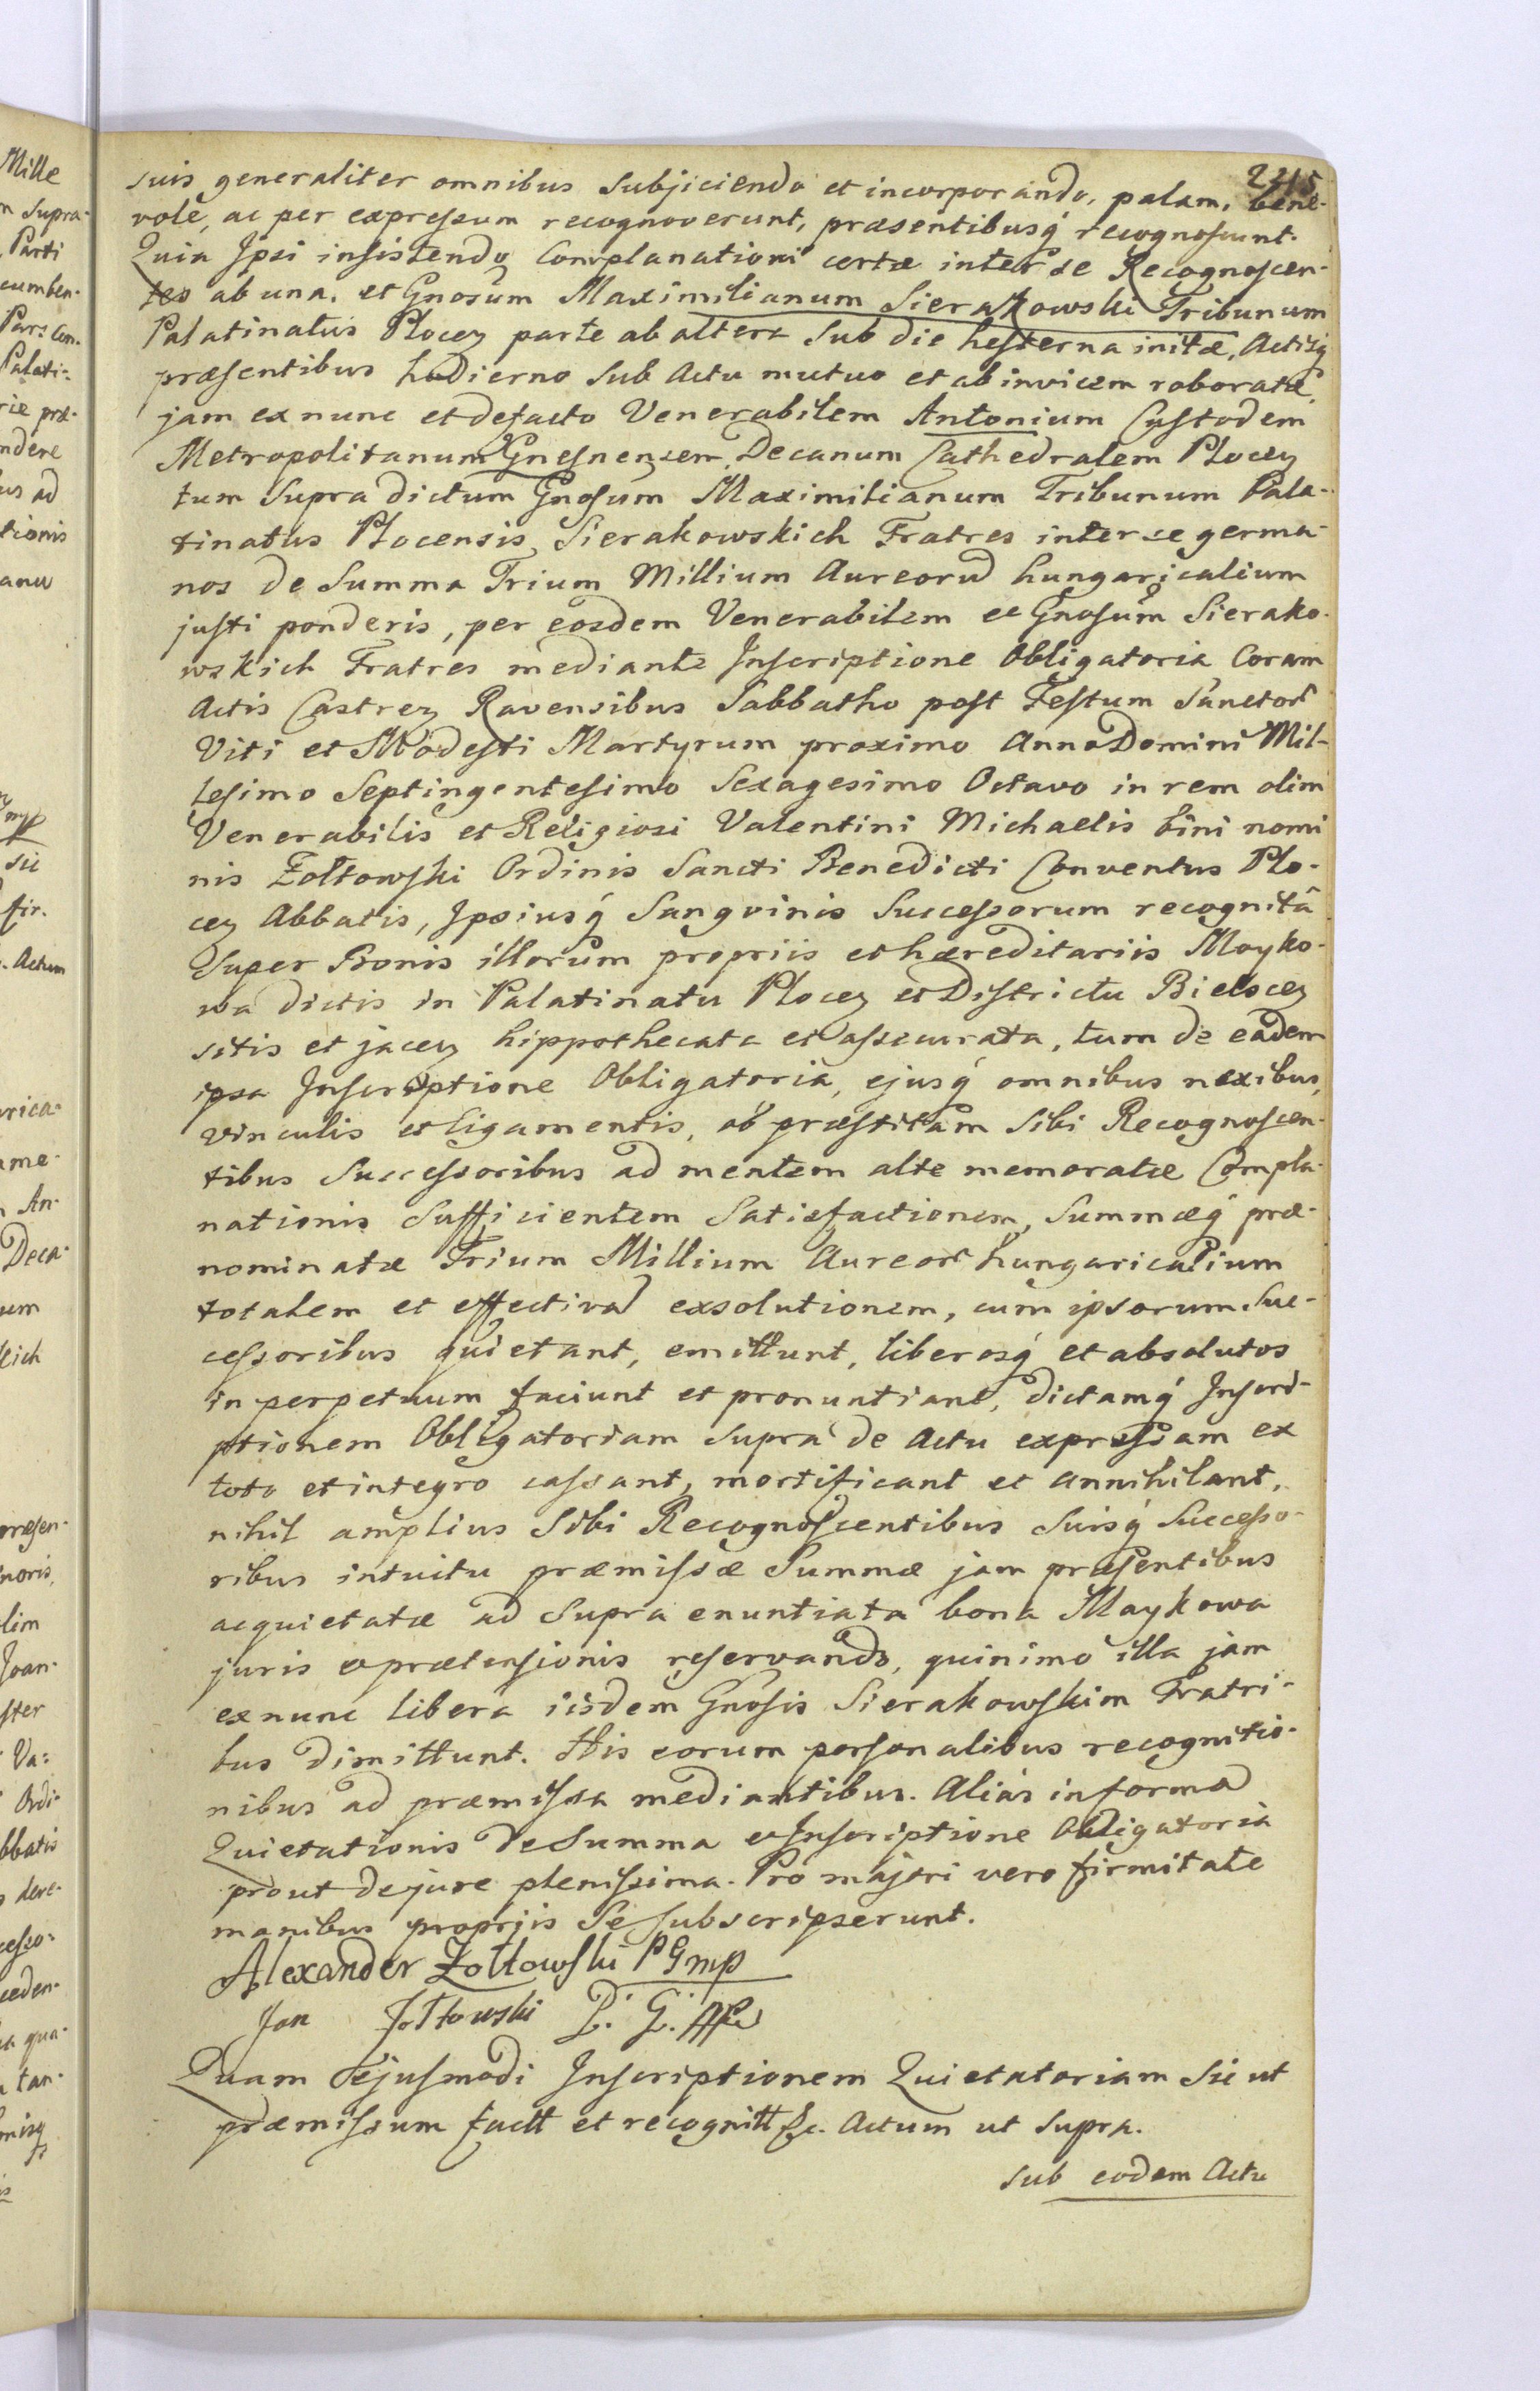 2215
suis generaliter omnibus subjiciendo et incorporando, palam, bene-
volè, ac per expressum recognoverunt, præsentibusq́ recognoscunt.
Quia Ipsi insistendo Complanationi certæ inter se Recognoscen-
tes ab una, et Gnosum Maximilianum Sierakowski Tribunum
Palatinatus Plocen parte ab altera sub die hesterna initæ, Actisq́
præsentibus hodierno sub Actu mutuo et ab invicem roboratæ,
jam ex nunc et defacto Venerabilem Antonium Custodem
Metropolitanum Gnesnensem, Decanum Cathedralem Plocen
tum supra dictum Gnosum Maximilianum Tribunum Pala-
tinatus Plocensis Sierakowskich Fratres inter se germa-
nos de Summa Trium Millium Aureorũ hungaricalium
justi ponderis, per eosdem Venerabilem et Gnosum Sierako-
wskich Fratres mediante Inscriptione Obligatoria Coram
Actis Castren Ravensibus Sabbatho post Festum Sanctor̃
Viti et Modesti Martyrum proximo Anno Domini Mil-
lesimo Septingentesimo Sexagesimo Octavo in rem olim
Venerabilis et Religiosi Valentini Michaelis bini nomi
nis Żołtowski Ordinis Sancti Benedicti Conventus Plo-
cen Abbatis, Ipsiusq́ Sangvinis Successorum recognitâ
Super Bonis illorum propriis et hæreditariis Mayko-
wa dictis in Palatinatu Plocen et Districtu Bielscen
sitis et jacen hippothecata et assecurata, tum de eadem
ipsa Inscriptione Obligatoria, ejusq́ omnibus nexibus,
vinculis et ligamentis, ob præstitam sibi Recognoscen-
tibus Successoribus ad mentem alte memoratæ Compla-
nationis sufficientem satisfactionem, summæq́ præ-
nominatæ Trium Millium Aureor̃ hungaricalium
totalem et effectivã exsolutionem, cum ipsorum Suc-
cessoribus quietant, emittunt, liberosq́ et absolutos
in perpetuum faciunt et pronuntiant, dictamq́ Inscri-
ptionem Obligatoriam supra de Actu expressam ex
toto et integro cassant, mortificant et annihilant,
nihil amplius Sibi Recognoscentibus Suisq́ Successo-
ribus intuitu præmissæ Summæ jam præsentibus
acquietatæ ad Supra enuntiata bona Maykowa
juris et prætensionis reservando, quinimo illa jam
ex nunc libera iisdem Gnosis Sierakowskim Fratri-
bus dimittunt. His eorum personalibus recognitio-
nibus ad præmissa mediantibus. Aliàs in forma
Quietationis de Summa et Inscriptione Obligatoria
prout de jure plenissima. Pro majori vero firmitate
manibus proprijs Se subscripserunt.
Alexander Żołtowski PG mp
Jan Żołtowski P. G. mp
Quam Ejusmodi Inscriptionem Quietatoriam sic ut
præmissum factt et recognitt &c. Actum ut supra.
sub eodem Actu